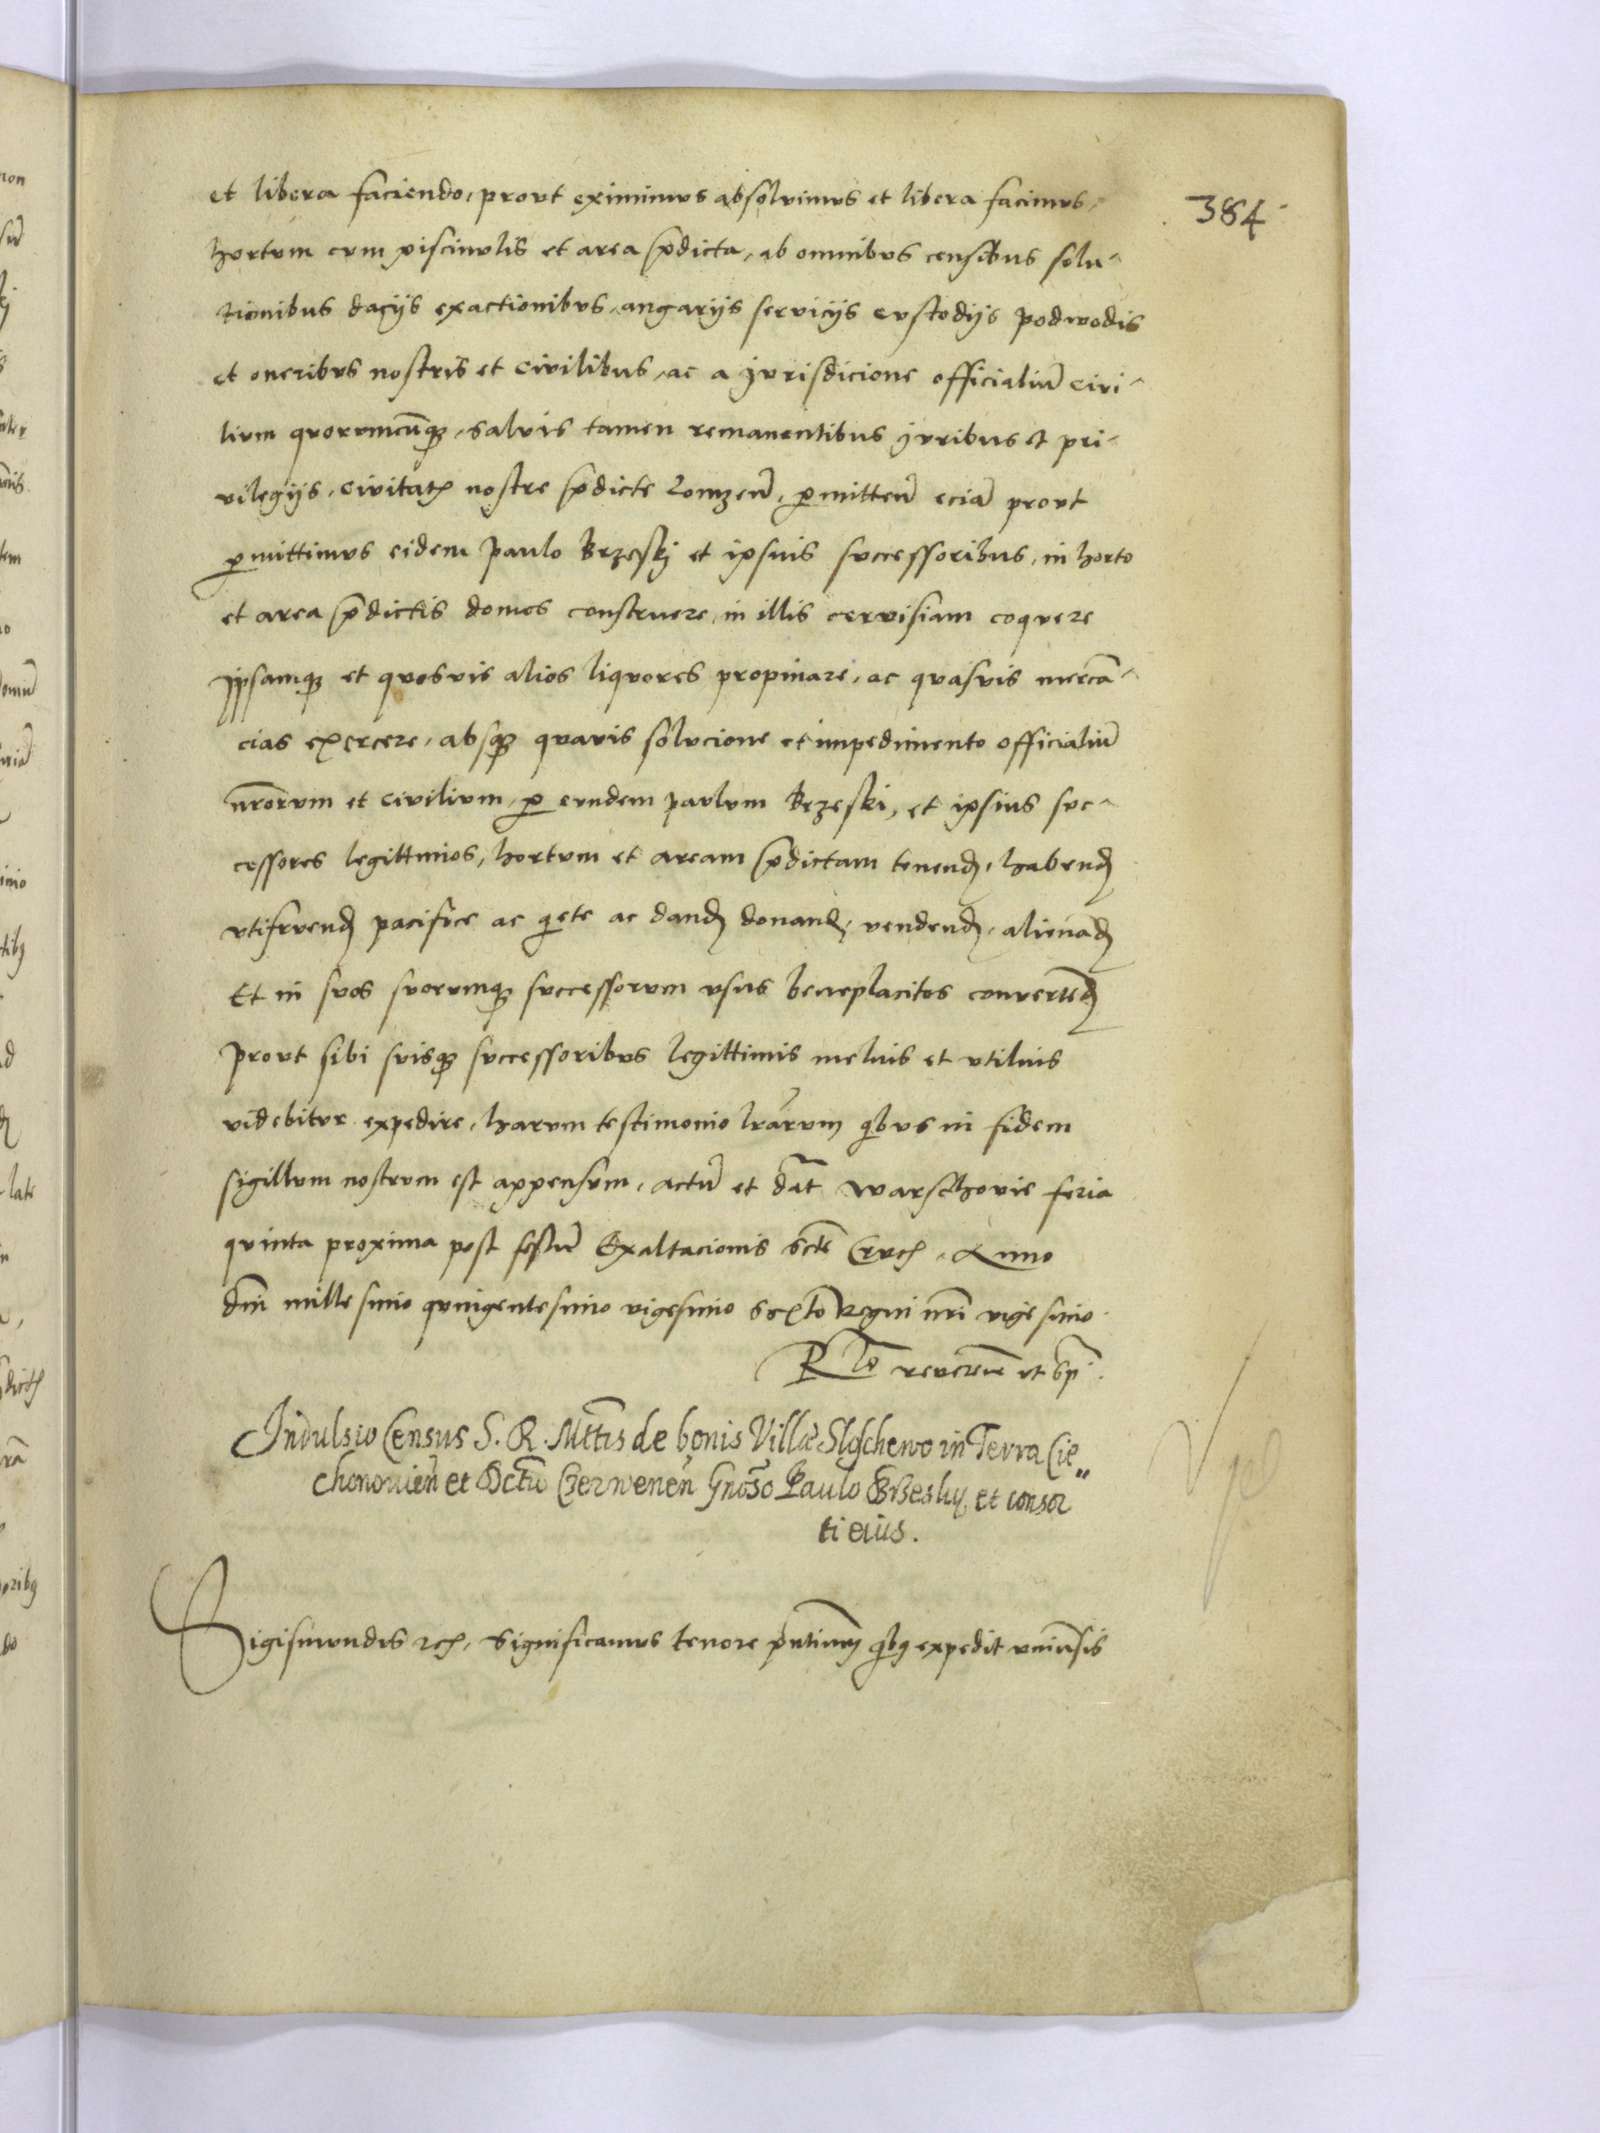 384
et libera faciendo, prout eximimus absolvimus et libera facimus,
hortum cum piscinulis et area p̄dicta, ab omnibus censibus solu-
tionibus dacijs exactionibus, angarijs servicijs custodijs podwodis
et oneribus nostris et civilibus, ac a jurisdicione officialiū civi-
lium quorumcūq3, salvis tamen remanentibus juribus et pri-
vilegijs, civitatis nostre p̄dicte Lomzen̄, p̱mitten̄ eciā prout
p̱mittimus eidem Paulo Brzeskj et ipsius successoribus, in horto
et area p̄dictis domos construere, in illis cervisiam coquere
Ipsamq3 et quosvis alios liquores propinare, ac quasvis mercā-
cias exercere, absq3 quavis solucione et impedimento officialiū
nr̄orum et civilium, p̱ eundem Paulum Brzeski, et ipsius suc-
cessores legittimos, hortum et aream p̄dictam tenend, habend
utifruend pacifice ac quiete ac dand donand, vendend, alienād
Et in suos suorumq3 successorum usus beneplacitos convertēd
Prout sibi suisq3 successoribus legittimis melius et utilius
videbitur expedire, harum testimonio lr̄arum qibus in fidem
sigillum nostrum est appensum, actū et dat̄ Warschovie feria
quinta proxima post festū Exaltacionis sctē Crucis, Anno
dn̄i millesimo quingentesimo vigesimo sexto Regni nr̄i vigesimo
Rlō reveren̄ et
Indulsio Census S. R. Mttis de bonis Villæ Sloschewo in Terra Cie„
chonovien̄ et Dctū Czerwenen̄ Gnoso Paulo Brzesky, et consor
ti eius.
Sigismundus rex, Significamus tenore pn̄tium qib9 expedit univsis